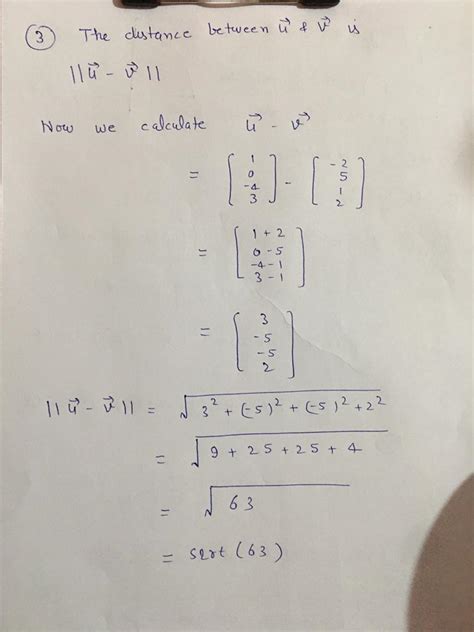 ③ The distance between u⃗ & v⃗ is
||u⃗ - v⃗||
Now we calculate u⃗ - v⃗
= [1 0 -4 3] - [-2 5 1 2]
= [1+2 0-5 -4-1 3-1]
= [3 -5 -5 2]
||u⃗ - v⃗|| = √3² + (-5)² + (-5)² + 2²
= √9 + 25 + 25 + 4
= √63
= sqrt (63)